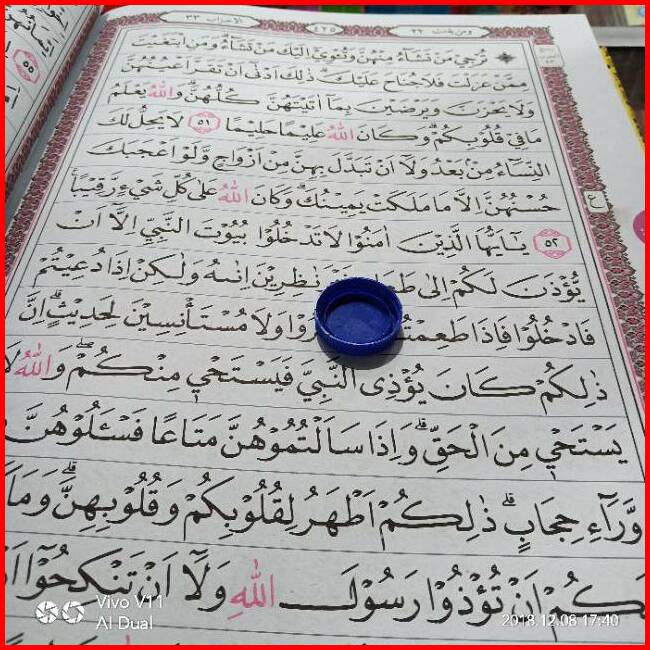 ومن يقنت ٢٢
٤٢٥
الاحزاب ٣٣
تُرْجِيْ مَنْ تَشَآءُ مِنْهُنَّ وَتُـْٔوِيْٓ اِلَيْكَ مَنْ تَشَآءُۗ وَمَنِ ابْتَغَيْتَ
مِمَّنْ عَزَلْتَ فَلَا جُنَاحَ عَلَيْكَۗ ذٰلِكَ اَدْنٰٓى اَنْ تَقَرَّ اَعْيُنُهُنَّ
وَلَا يَحْزَنَّ وَيَرْضَيْنَ بِمَآ اٰتَيْتَهُنَّ كُلُّهُنَّۗ وَاللّٰهُ يَعْلَمُ
مَا فِيْ قُلُوْبِكُمْۗ وَكَانَ اللّٰهُ عَلِيْمًا حَلِيْمًا ٥١ لَا يَحِلُّ لَكَ
النِّسَآءُ مِنْۢ بَعْدُ وَلَآ اَنْ تَبَدَّلَ بِهِنَّ مِنْ اَزْوَاجٍ وَّلَوْ اَعْجَبَكَ
حُسْنُهُنَّ اِلَّا مَا مَلَكَتْ يَمِيْنُكَۗ وَكَانَ اللّٰهُ عَلٰى كُلِّ شَيْءٍ رَّقِيْبًا
٥٢ يٰٓاَيُّهَا الَّذِيْنَ اٰمَنُوْا لَا تَدْخُلُوْا بُيُوْتَ النَّبِيِّ اِلَّآ اَنْ
يُّؤْذَنَ لَكُمْ اِلٰى نٰظِرِيْنَ اِنٰىهُ وَلٰكِنْ اِذَا دُعِيْتُمْ
فَادْخُلُوْا فَاِذَا طَعِمْتُمْ وَلَا مُسْتَأْنِسِيْنَ لِحَدِيْثٍۗ اِنَّ
ذٰلِكُمْ كَانَ يُؤْذِى النَّبِيَّ فَيَسْتَحْيٖ مِنْكُمْۖ وَاللّٰهُ لَا
يَسْتَحْيٖ مِنَ الْحَقِّۗ وَاِذَا سَاَلْتُمُوْهُنَّ مَتَاعًا فَسْـَٔلُوْهُنَّ
وَّرَآءِ حِجَابٍۗ ذٰلِكُمْ اَطْهَرُ لِقُلُوْبِكُمْ وَقُلُوْبِهِنَّۗ وَمَا
لَكُمْ اَنْ تُؤْذُوْا رَسُوْلَ اللّٰهِ وَلَآ اَنْ تَنْكِحُوْٓا
Vivo V11
AI Dual
2018.12.08 17:40